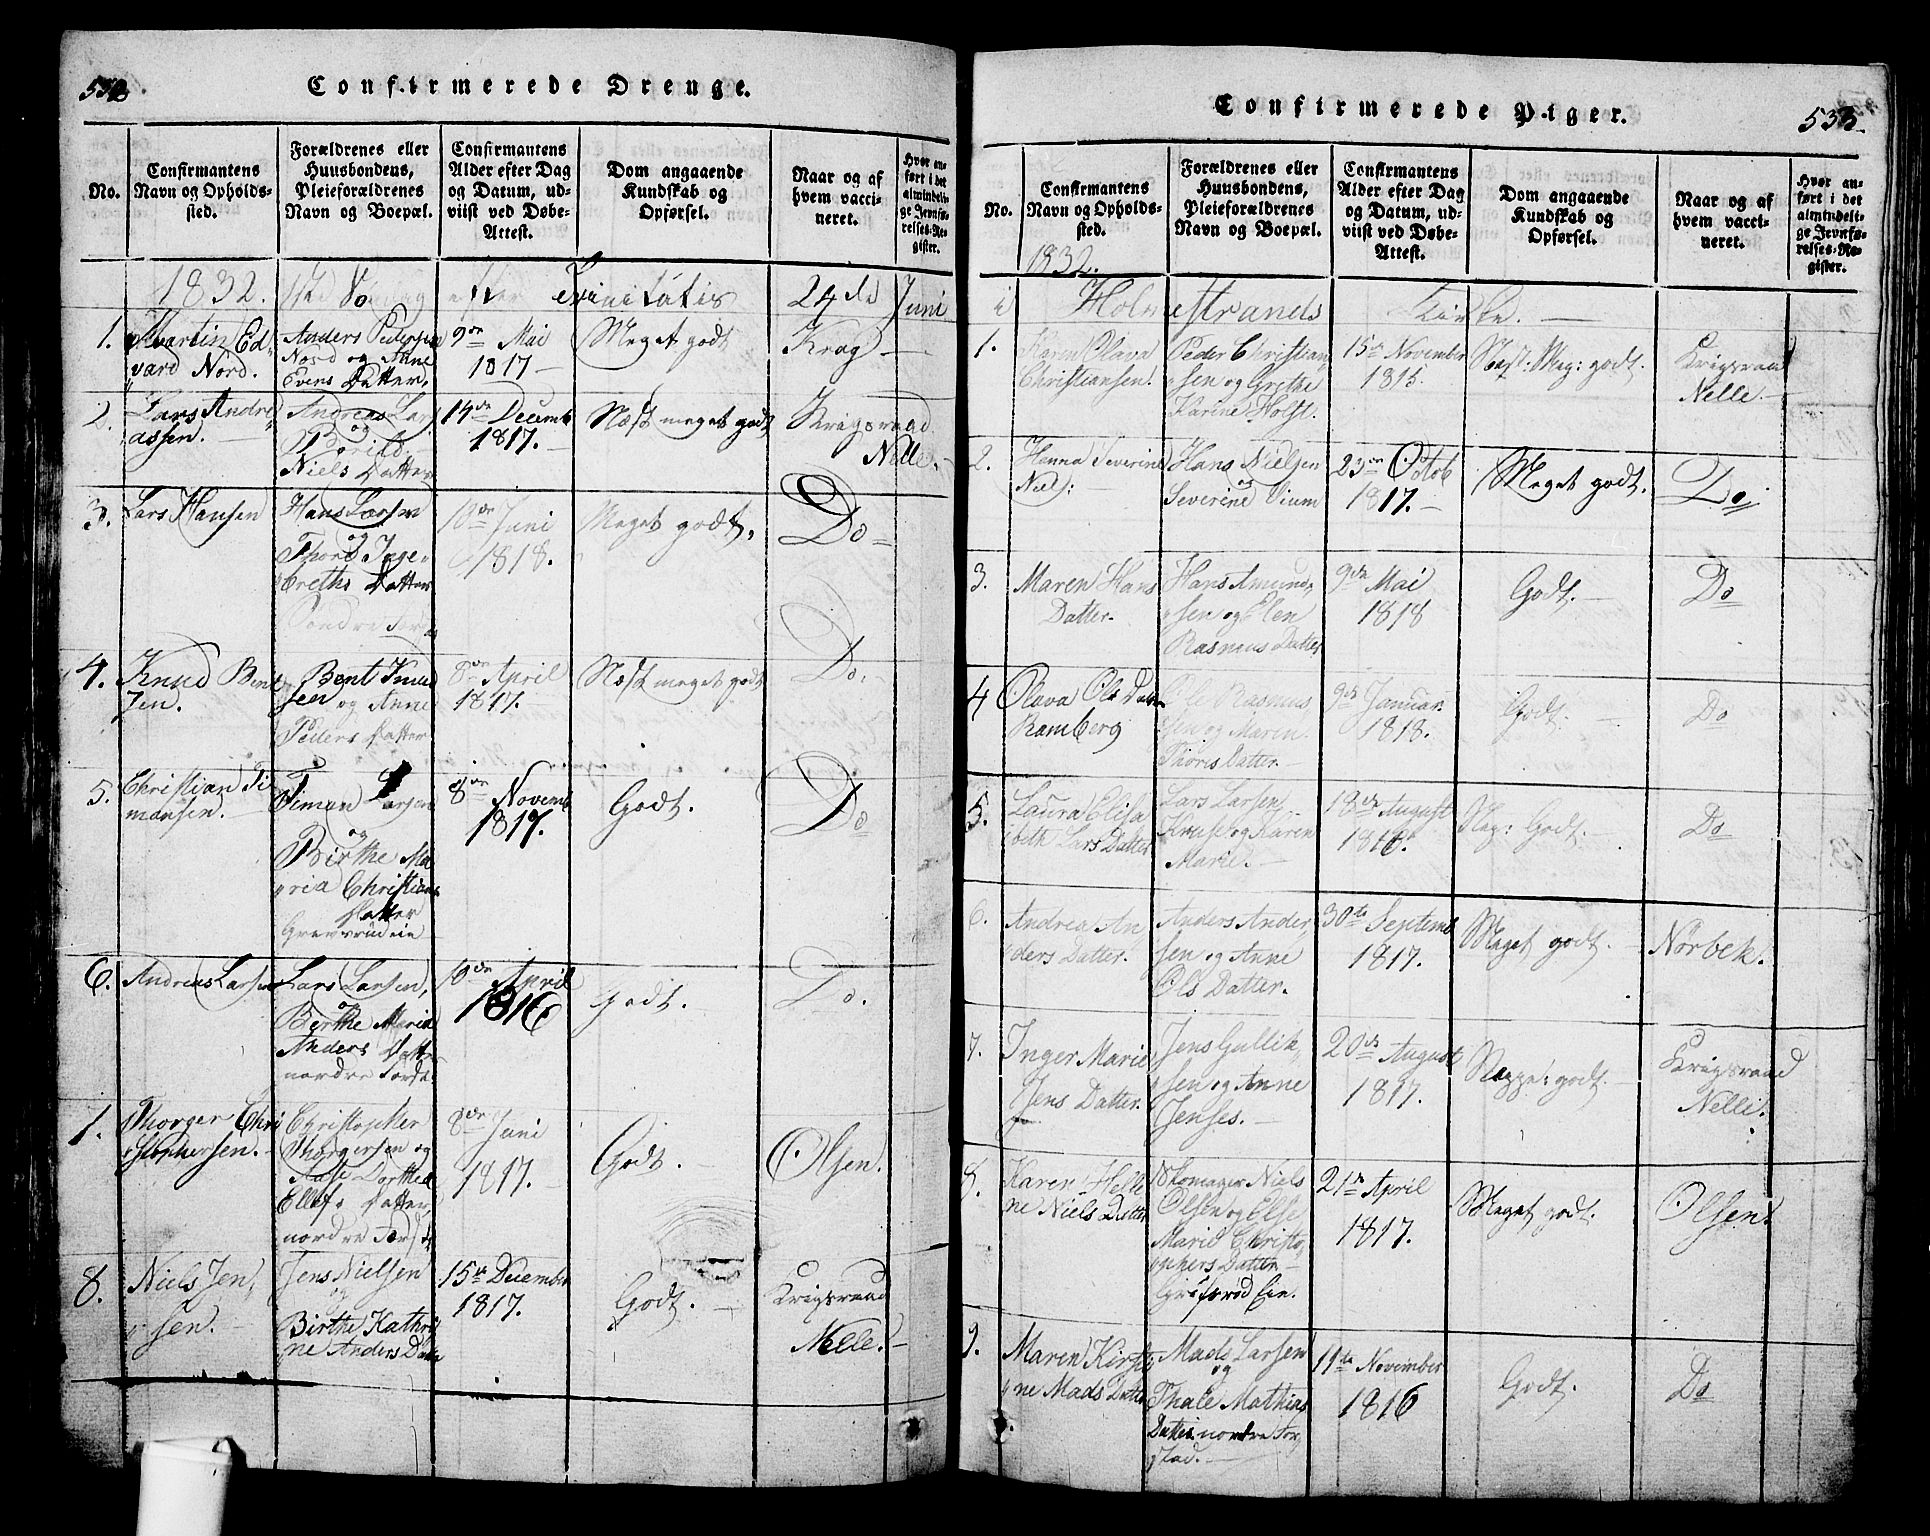 532
Confirmerede Drenge.
No.
Confirmantens
Navn og Opholds-
sted.
Forældrenes eller
Huusbondens,
Pleieforældrenes
Navn og Boepæl.
Confirmantens
Alder efter Dag
og Datum, ud-
viist ved Døbe-
Attest.
Dom angaaende
Kundskab og
Opførsel.
Naar og af
hvem vacci-
neret.
Hvor an-
ført i det
almindeli-
ge Jevnfø-
relses-Re-
gister.
1832. efter Trinitatis 24de Juni
1.
Martin Ed-
vard Nord.
Anders Pedersen
Nord og Anne
Evens Datter.
9de Mai
1817
Meget godt
Krag
2.
Lars Andre-
assen.
Andreas Lars
og
Borild
Niels Datter
14de Decemb
1817.
Næst meget godt
Krigsraad
Nelle.
3.
Lars Hansen
Hans Larsen
og
Thore Inge-
breths Datter
10de Juni
1818.
Meget godt.
Do
4.
Knud Bent
sen.
Bent Knud
sen og Anne
Peders Datter
8de April
1817.
Næst meget godt
Do.
5.
Christian Ti-
mansen.
Timan Larsen
og
Birthe Ma
ria Christians
Datter
Grevsrudeie
8de Novemb
1817.
Godt.
Do
6.
Andreas Larsen
Lars Larsen,
og
Berthe Marie
Anders Datt.
nordre
10de April
1816
Godt.
Do.
7.
Thorger Chri
stophersen.
Christopher
Thorgersen og
Aase Dorthea
Ellefs Datter,
nordre
8de Juni
1817.
Godt.
Olsen.
8.
Niels Jen-
sen.
Jens Nielsen
og
Birthe Kathri
ne Anders Datter
15de December
1817.
Godt.
Krigsraad
Nelle.
Confirmerede Piger.
533
No.
Confirmantens
Navn og Opholds-
sted.
1832.
Forældrenes eller
Huusbondens,
Pleieforældrenes
Navn og Boepæl.
Confirmantens
Alder efter Dag
og Datum, ud-
viist ved Døbe-
Attest.
Dom angaaende
Kundskab og
Opførsel.
Naar og af
hvem vacci-
neret.
Hvor an-
ført i det
almindeli-
ge Jevnfø-
relses-Re-
gister.
i Holmestrands Kirke.
1.
Karen Olava
Christiansen.
Peder Christian-
sen og Grethe
Karine Holst.
15de November
1815.
Næst. Meg: godt.
Krigsraad
Nelle.
2.
Hanna Severine
Niels:
Hans Nielsen
og
Severine Vium
23de Octob
1817.
Meget godt.
Do
3.
Maren Hans
Datter.
Hans Amund-
sen og Elen
Rasmus Datter
9de Mai
1818
Godt.
Do
4
Olava Ols Datter
Ramberg
Ole Rasmus
sen og Maren
Thores Datter
9de Januar
1818.
Godt.
Do
5.
Laura Elisa
beth Lars Datter
Lars Larsen
Kruse og Karen
Marie.
18de August
1816.
Meg: Godt.
Do
6.
Andrea An-
ders Datter.
Anders Ander-
sen og Anne
Ols Datter.
30te Septemb
1817.
Meget godt.
Nörbek.
7.
Inger Marie
Jens Datter.
Jens Gullik-
sen og Anne
Jenses.
20de August
1817.
godt.
Krigsraad
Nelle.
8.
Karen Helle
ne Niels Datter
Skomager Niels
Olsen og Else
Marie Christo
phers Datter
21de April
1817.
Meget godt.
Olsen.
9.
Maren Kirsti-
ne Mads Datter
Mads Larsen
og
Thale Mathias
Datter nordre For-
stad.
11te November
1816
Godt.
Do